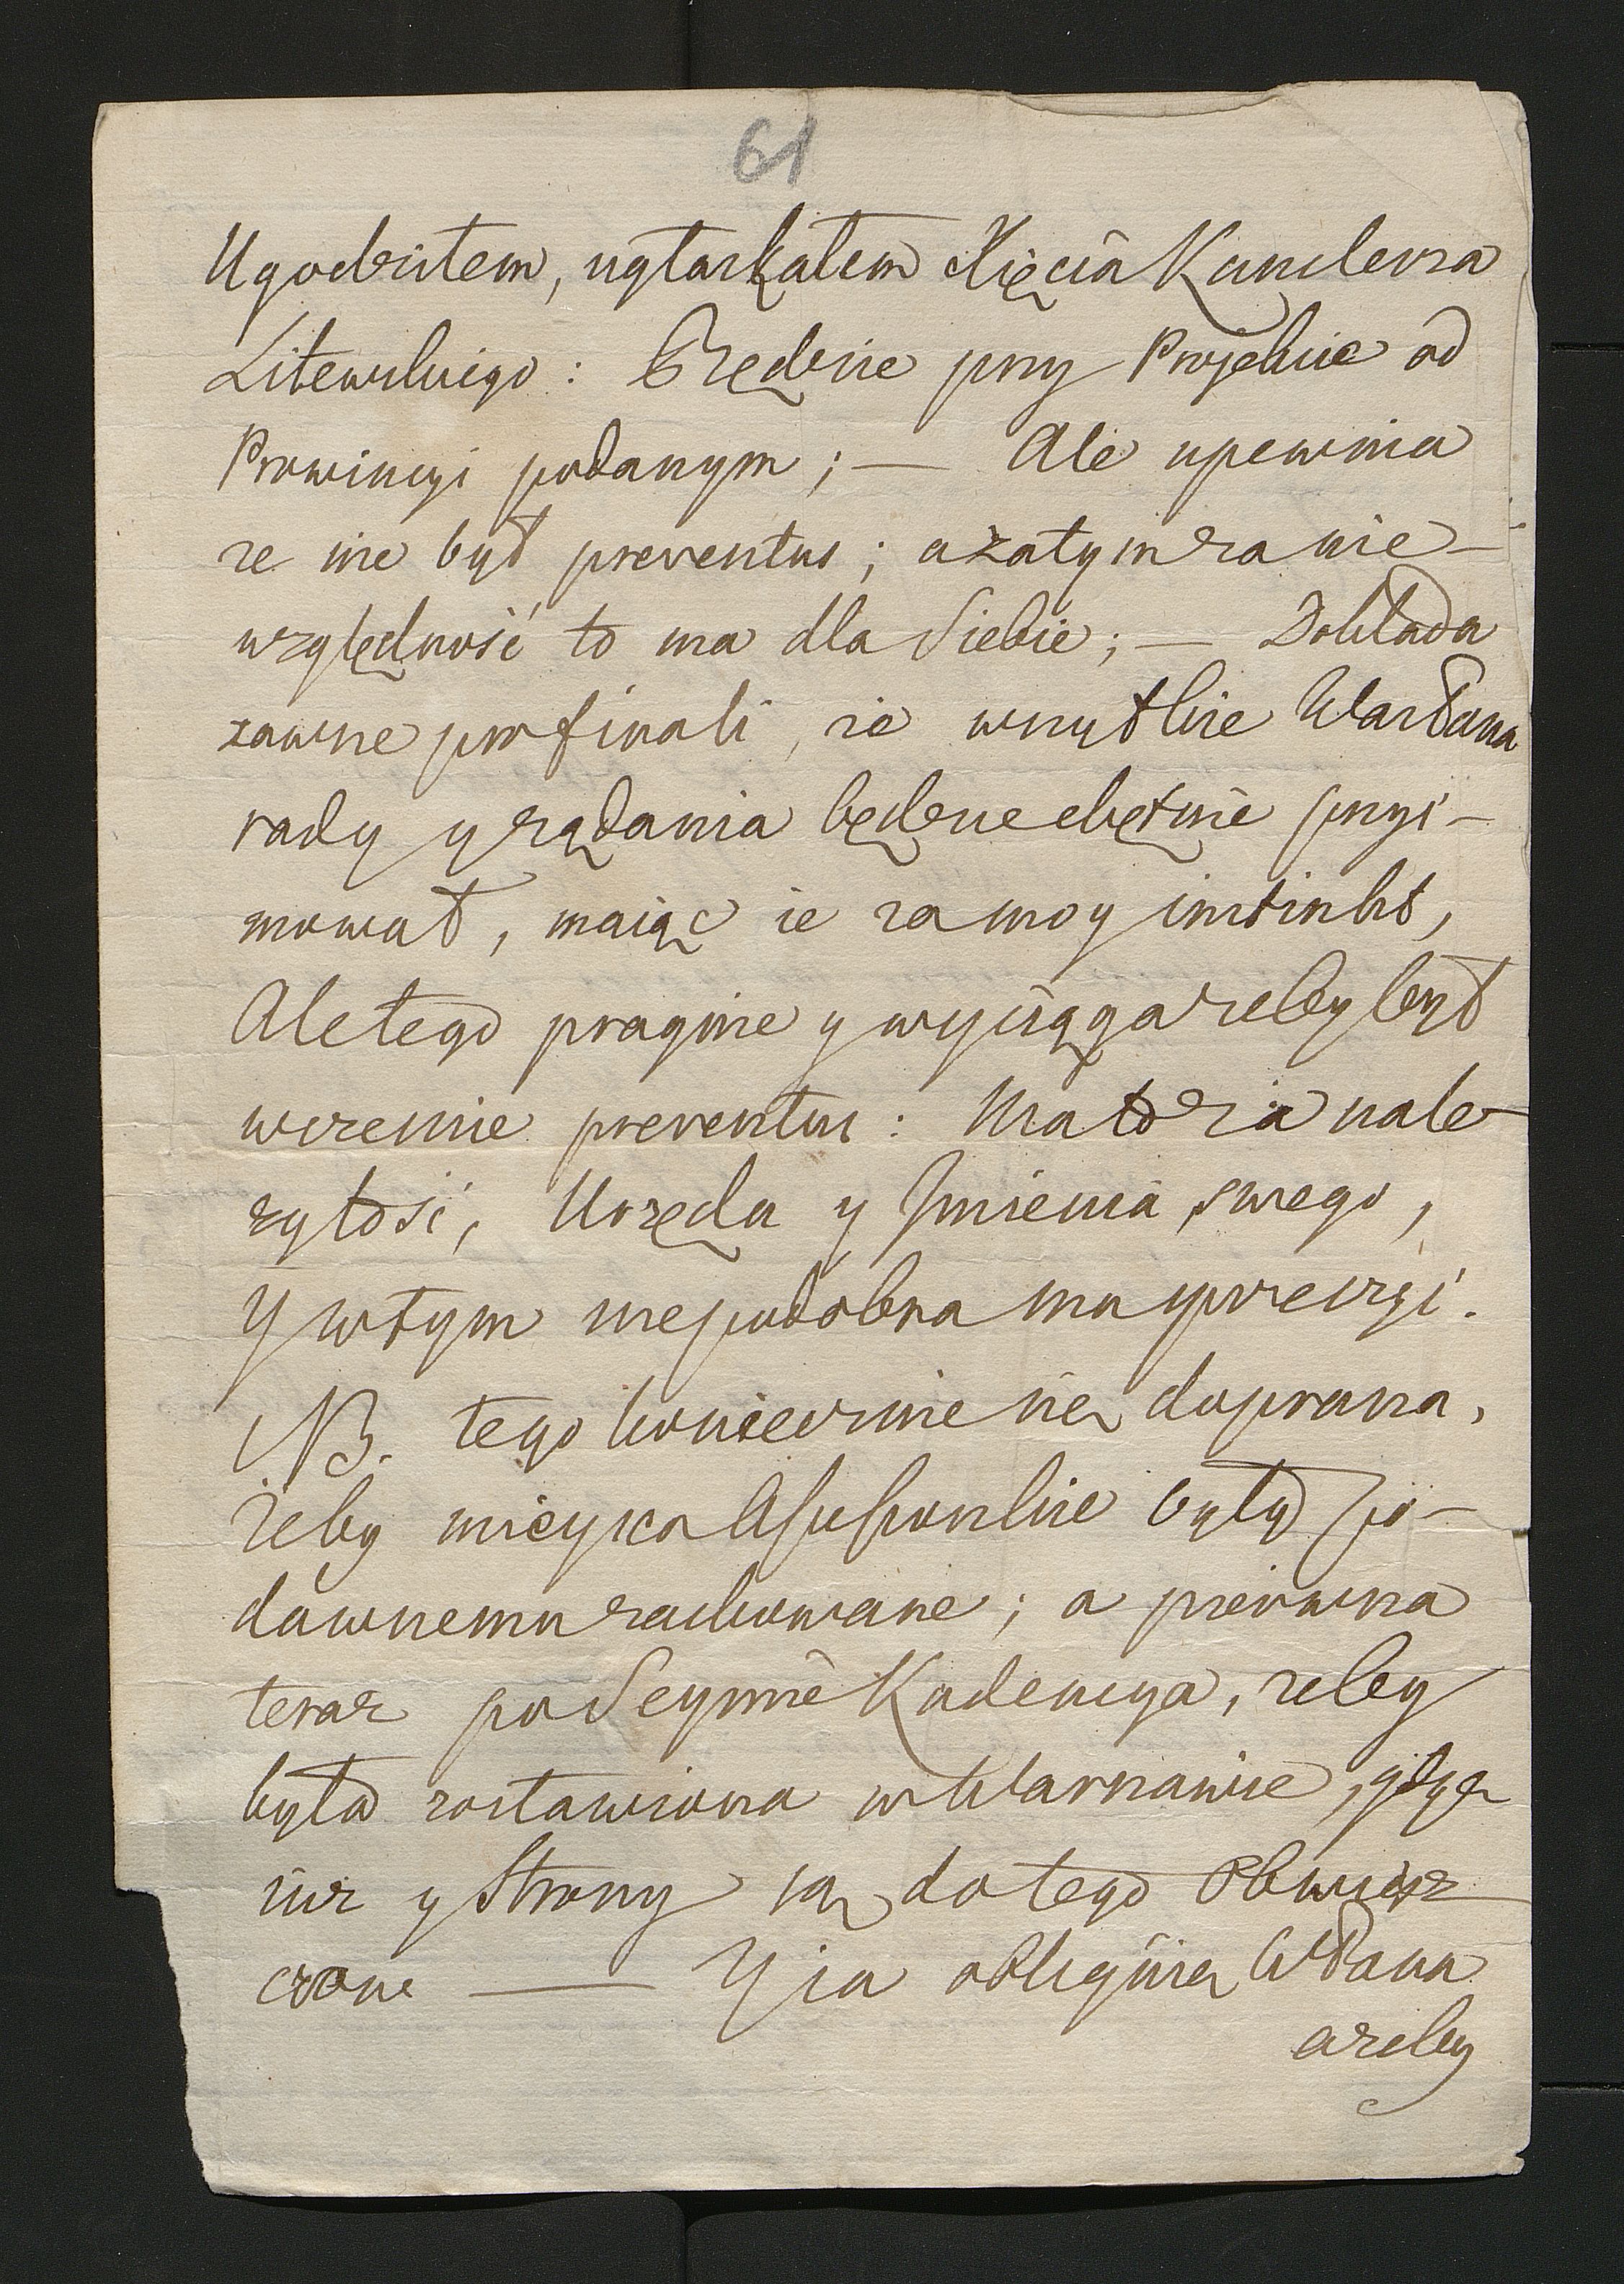 61
Ugodziłem, ugłaskałem Xięcia Kanclerza
Litewskiego: Będzie przy Projekcie od
Prowincyi podanym; — Ale upewnia
że nie był preventus; azatym za nie-
względność to ma dla Siebie; — Dokłada
zawsze pro finali, że wszystkie WPana
rady y żądania będzie chętnie przyi-
mował, maiąc ie za moy instinkt,
Ale tego pragnie y wyciąga żeby był
wcześnie preventus: Ma to za nale-
żytość, Urzędu y Imienia swego,
Y w tym niepodobna mu przeczyć.
NB. tego koniecznie się doprasza,
żeby mieysca Assessorskie były po-
dawnemu zachowane; a pierwsza
teraz po Seymie Kadencya, żeby
była zostawiona w Warszawie, gdyż
iuż y Strony są do tego Obwiesz
czone — Y ia obliguię WPana
ażeby